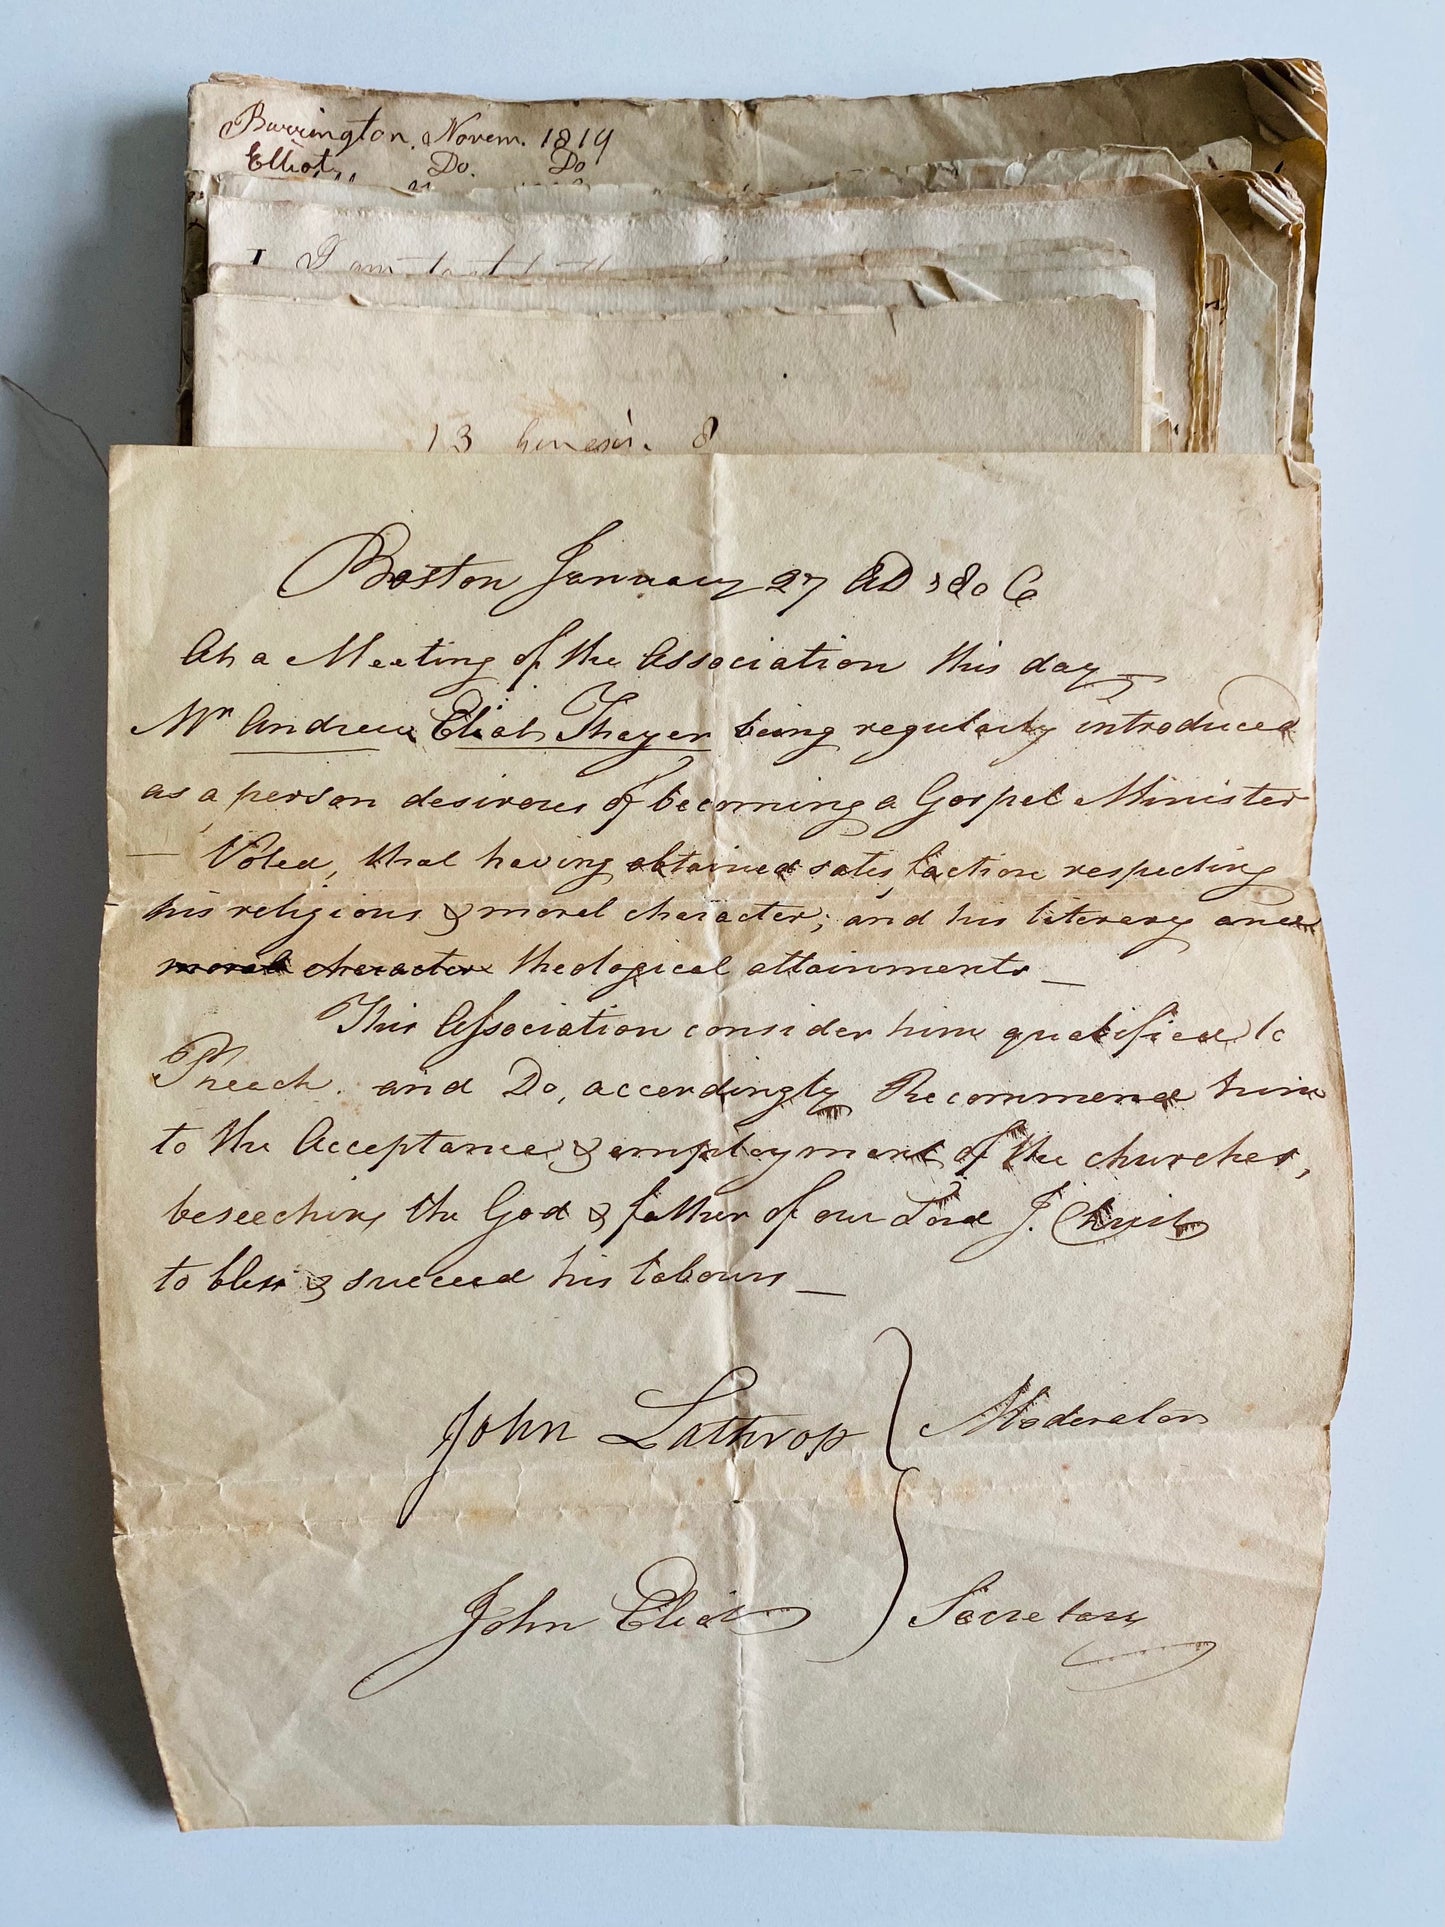 Barrington, Novem. 1819
Elliot, Do. Do
I am
13 8
Boston January 27 AD 1806
At a Meeting of the Association this day
Mr Andrew Eliot Thayer being regularly introduced
as a person desirous of becoming a Gospel Minister
— Voted, that having obtained satisfaction respecting
his religious & moral character; and his literary and
moral character theological attainments —
This Association consider him qualified to
Preach. and Do, accordingly Recommend him
to the Acceptance & employment of the churches,
beseeching the God & father of our Lord J. Christ
to bless & succeed his labours —
John Lathrop } Moderator
John Eliot } Secretary